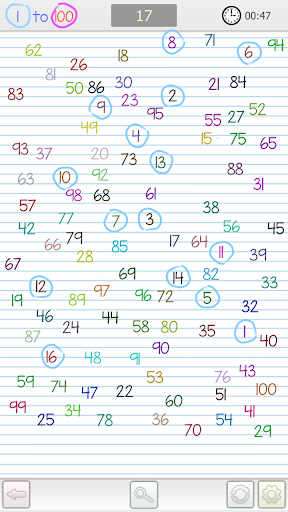 1 to 100 17 00:47
8 71
62 6 94
26 18
81
50 86 30 21 84
83 23 2
9 95 55 27 52
49 4 15 75 65
93 37 20 73 13
63 10 92 88 31
98 68 61
57 77 7 3 38
42 56 45
66 79 85 17 64 11 39
67 28
69 14 82 33
12 89 97
19 96 72 5 32
46 24 44 58 80 35 1 40
87
16 48 91
59 74 47 53 76 43
22 51 100
99 34 60 41
25 78 36 70 54 29